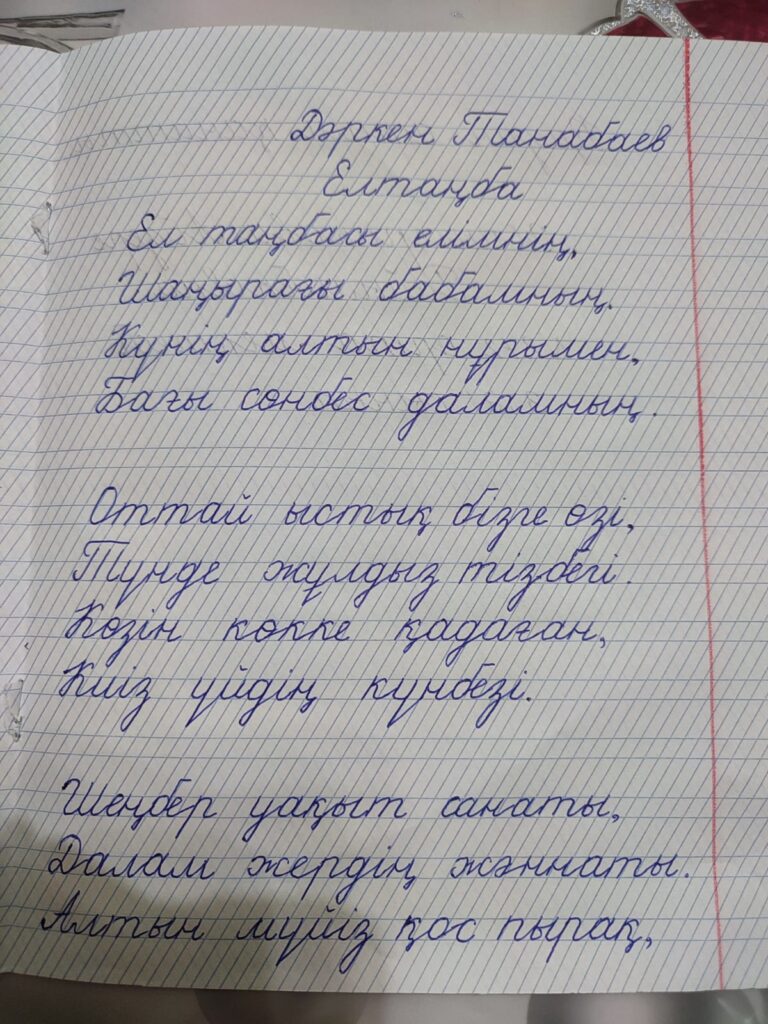 Дәркен Танабаев
Елтаңба
Ел таңбасы елімнің,
Шаңырағы бабамның.
Күнің алтын нұрымен,
Бағы сөнбес даламның.
Оттай ыстық бізге өзі,
Түнде жұлдыз тізбегі.
Көзін көкке қадаған,
Киіз үйдің күнбезі.
Шеңбер уақыт санаты,
Далам жердің жәннаты.
Алтын мүйіз қос пырақ,